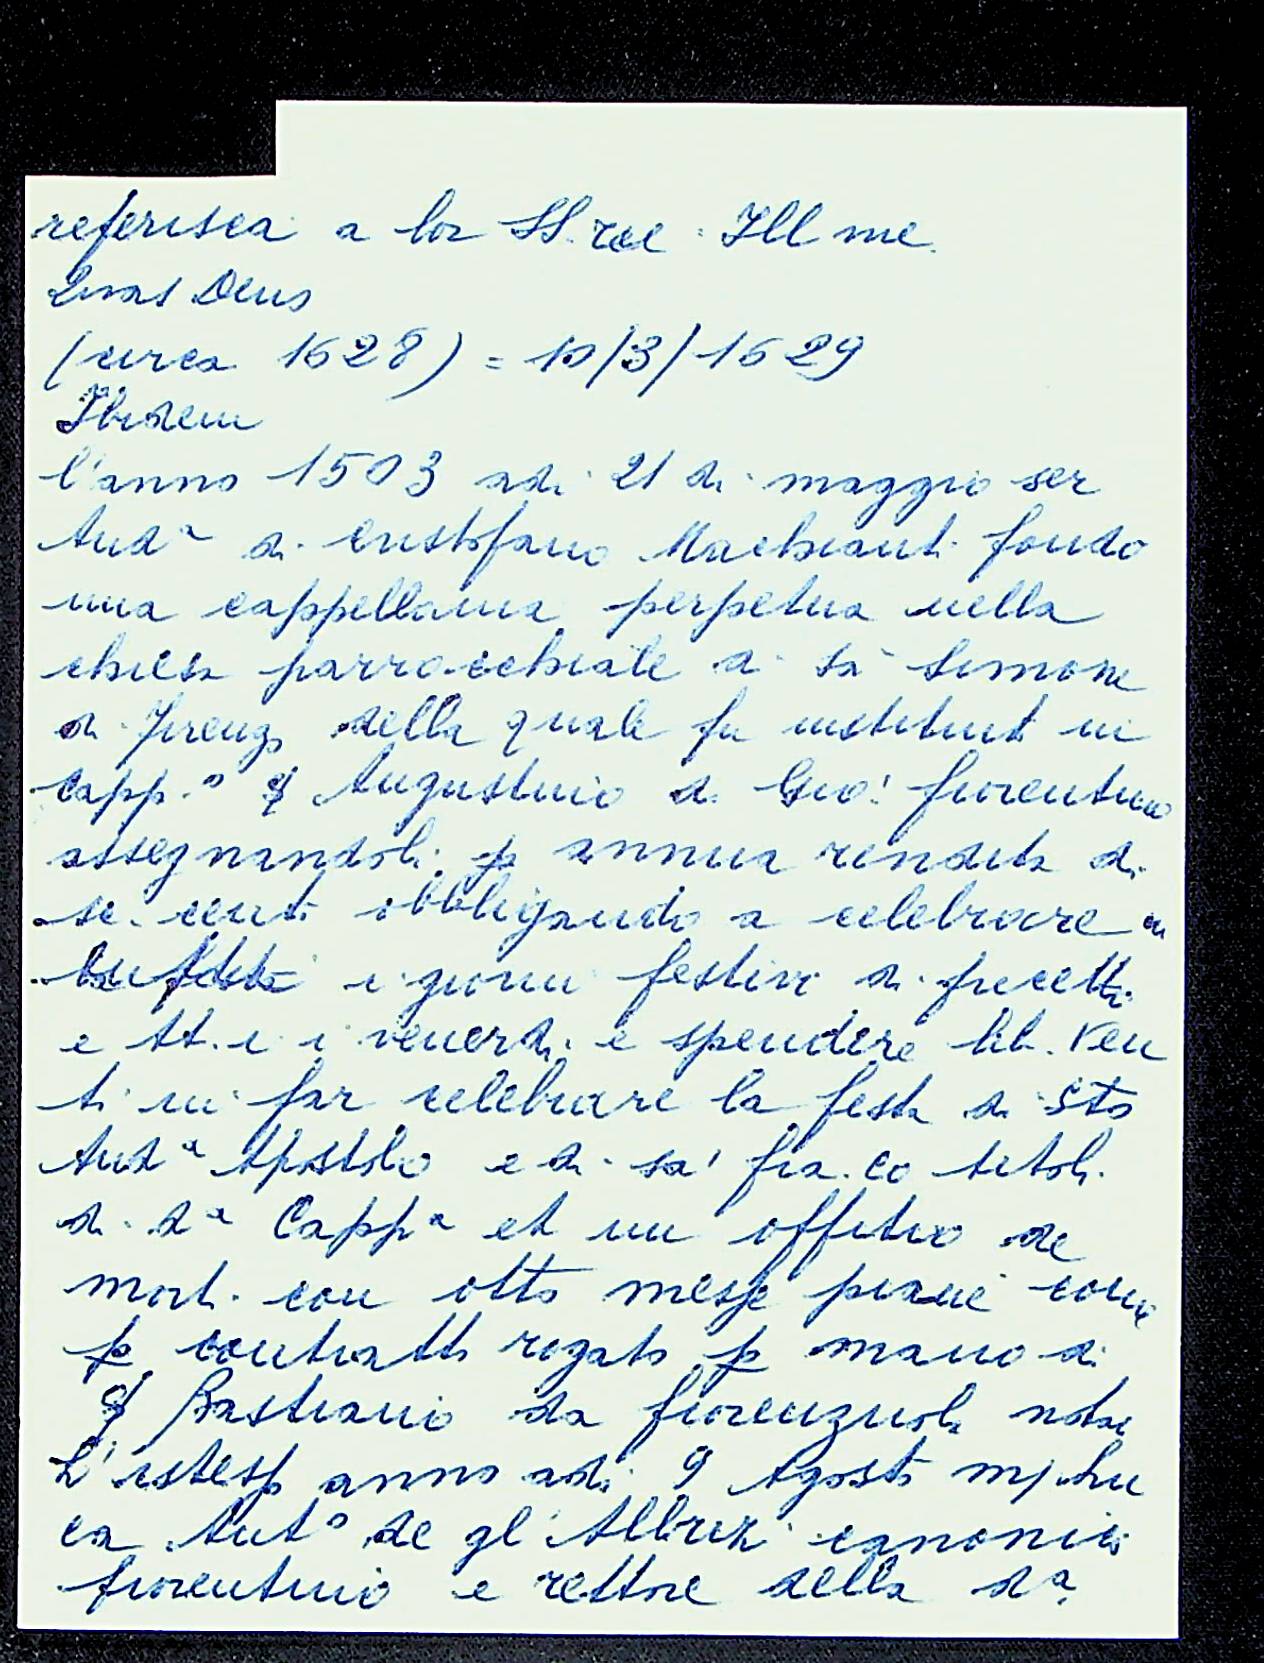 referisca a lor SS.rie Ill me.
Quas Deus
(circa 1628) = 10/3/1629
Ibidem
l'anno 1503 adi 21 di maggio ser
And.a di Cristofano Machiavti fondo
una cappellania perpetua nella
chiesa parrocchiale di sa Simone
di Firenz, della quale fu instituit in
Capp.o Augustino di Gio: fiorentino
assegnandoli p annua rendita di
sc. centi obbligando a celebrare in
i giorni festivi di precetti
e tt.i i venerdi e spendere lib. ven
ti in far celebrare la festa di Sto
And.a Apostolo e di sa' fra.co titoli
di d.a Capp.a et un offitio de
morti con otto messe piane come
p contratto rogato p mano di
Bastiano da fiorenzuola notai
L'istesso anno adi 9 Agosto
Ant.o de gl'Albizi canonico
fiorentino e rettore della d.a